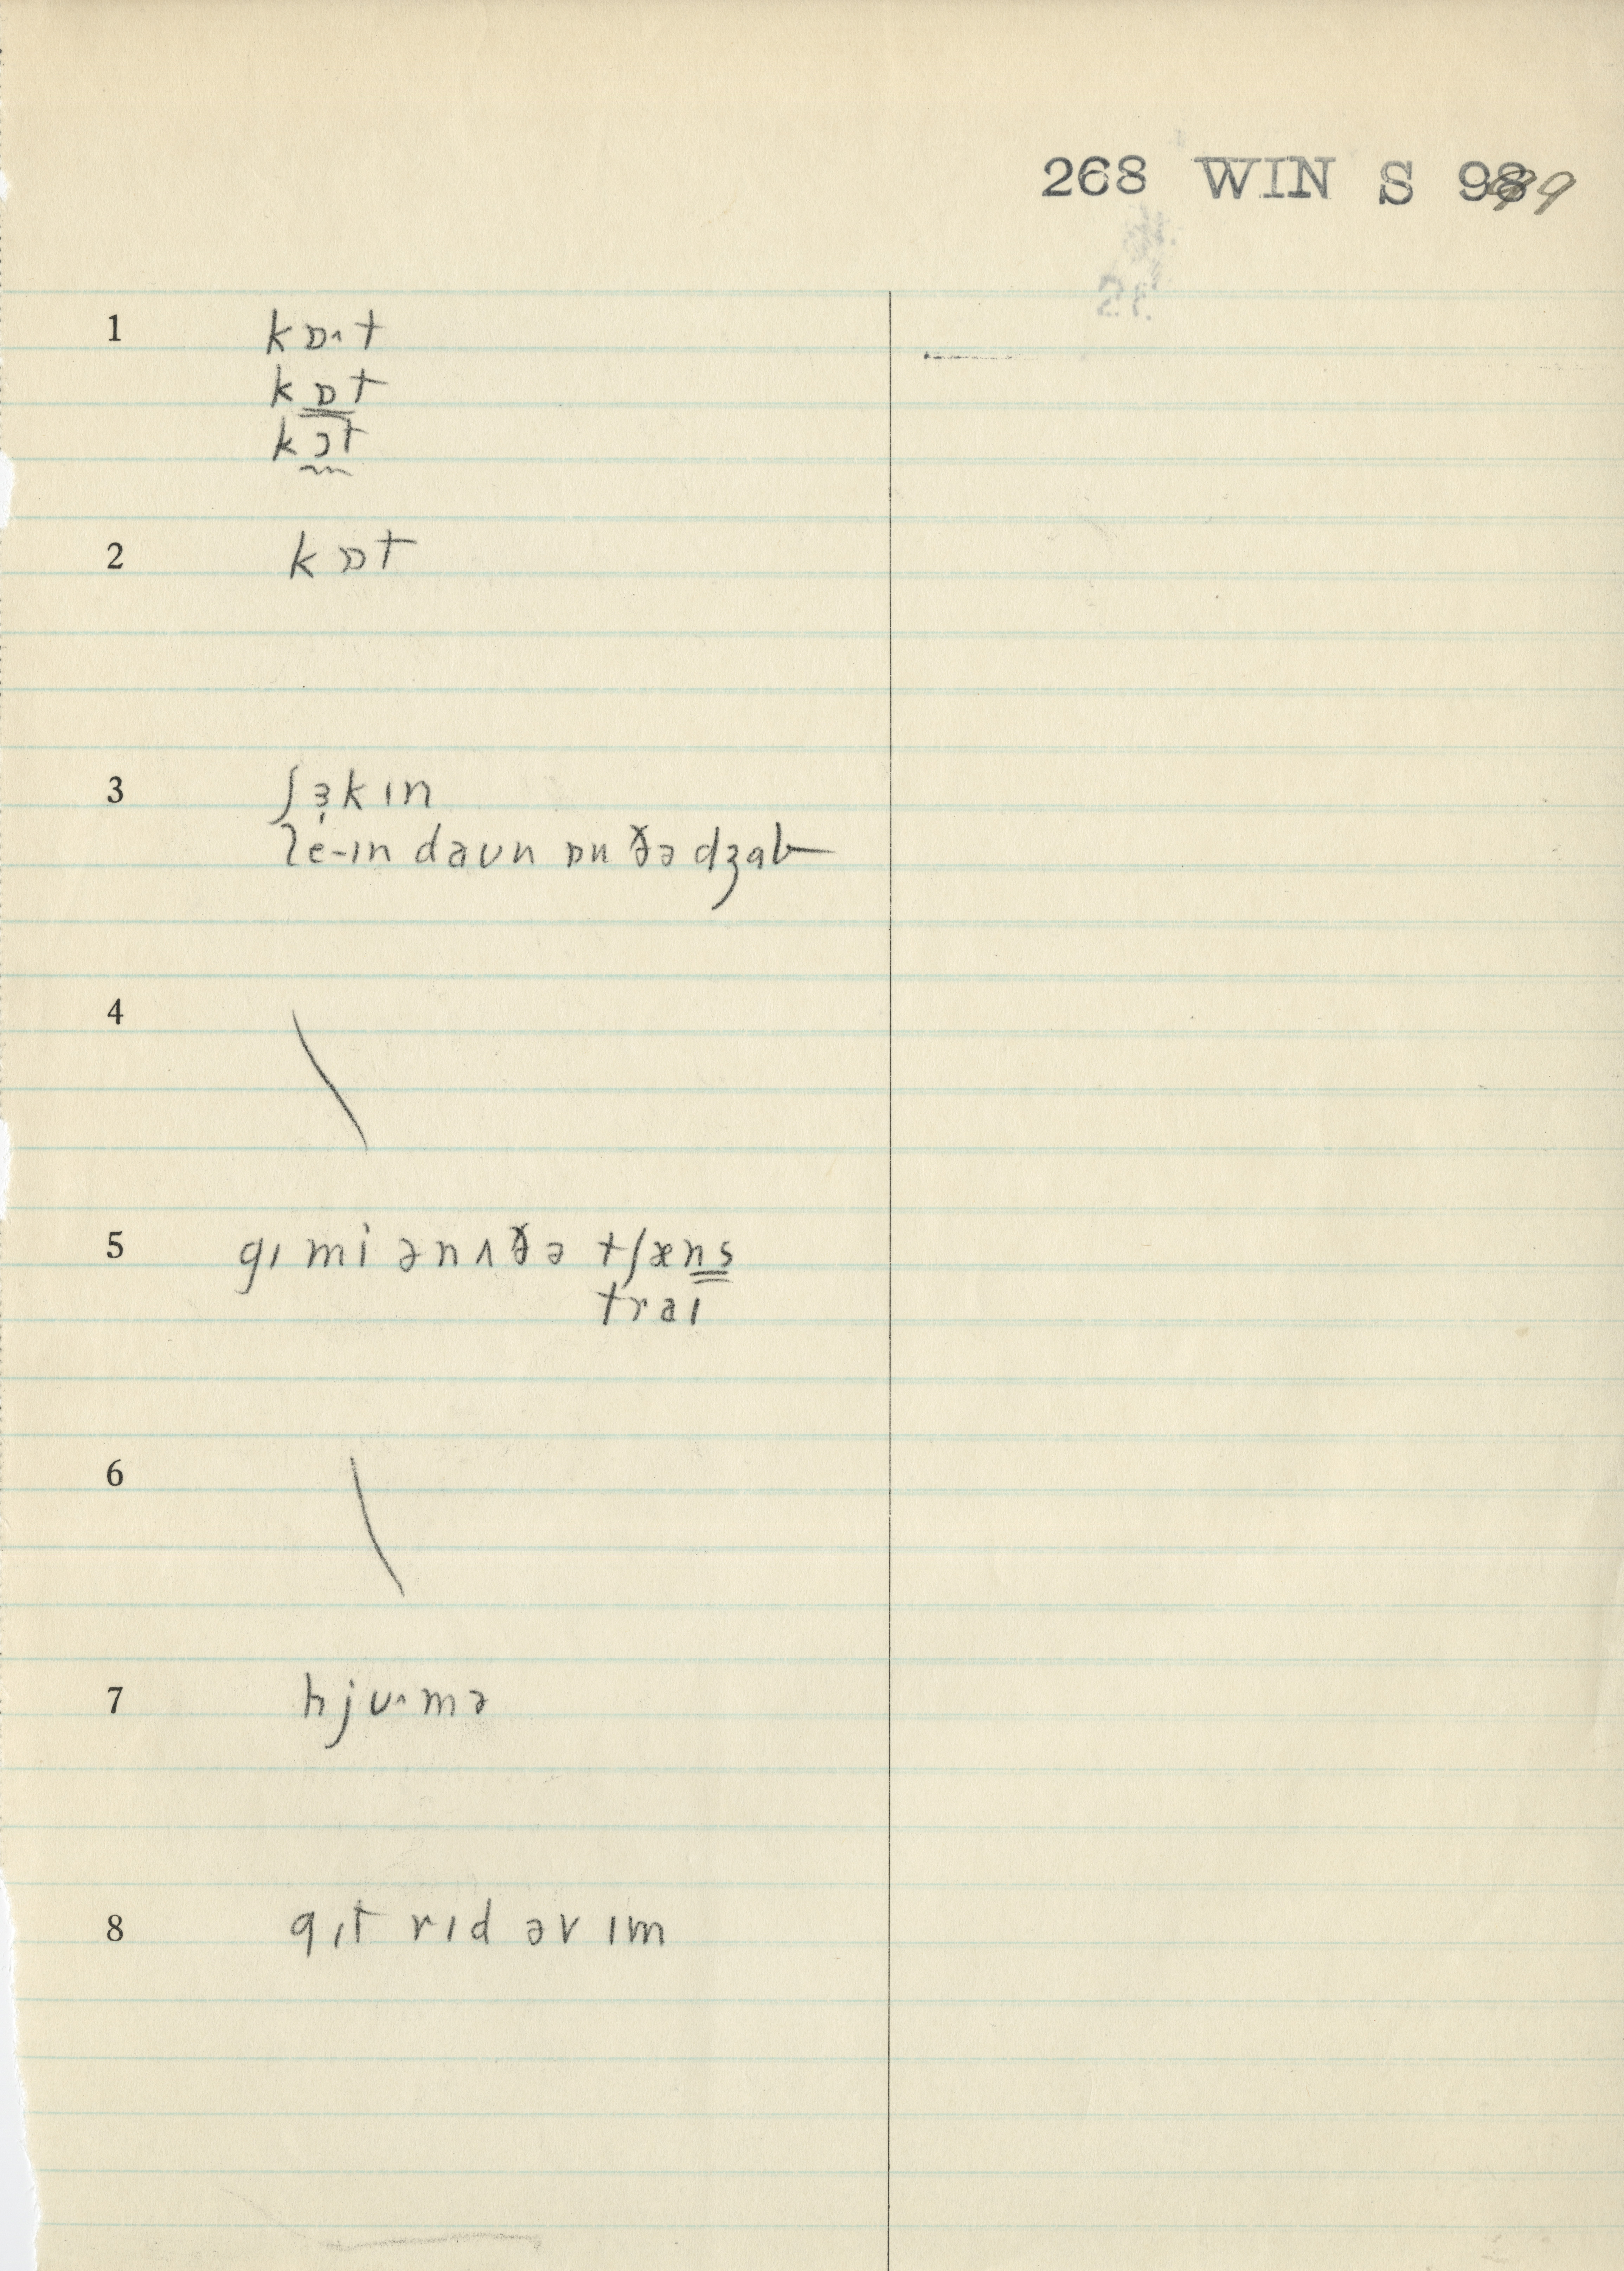 268 WIN S 99
1 kɒ˄t
kɒt
kɔt
2 kɒt
3 ʃɜ̣kɪn
leɪ-ɪn daʊn ɒn ðə dʒab
4 \
5 gɪ mi ənʌðə tʃæns
traɪ
6 \
7 hjʊ˄mə
8 gɪt rɪd əv ɪm